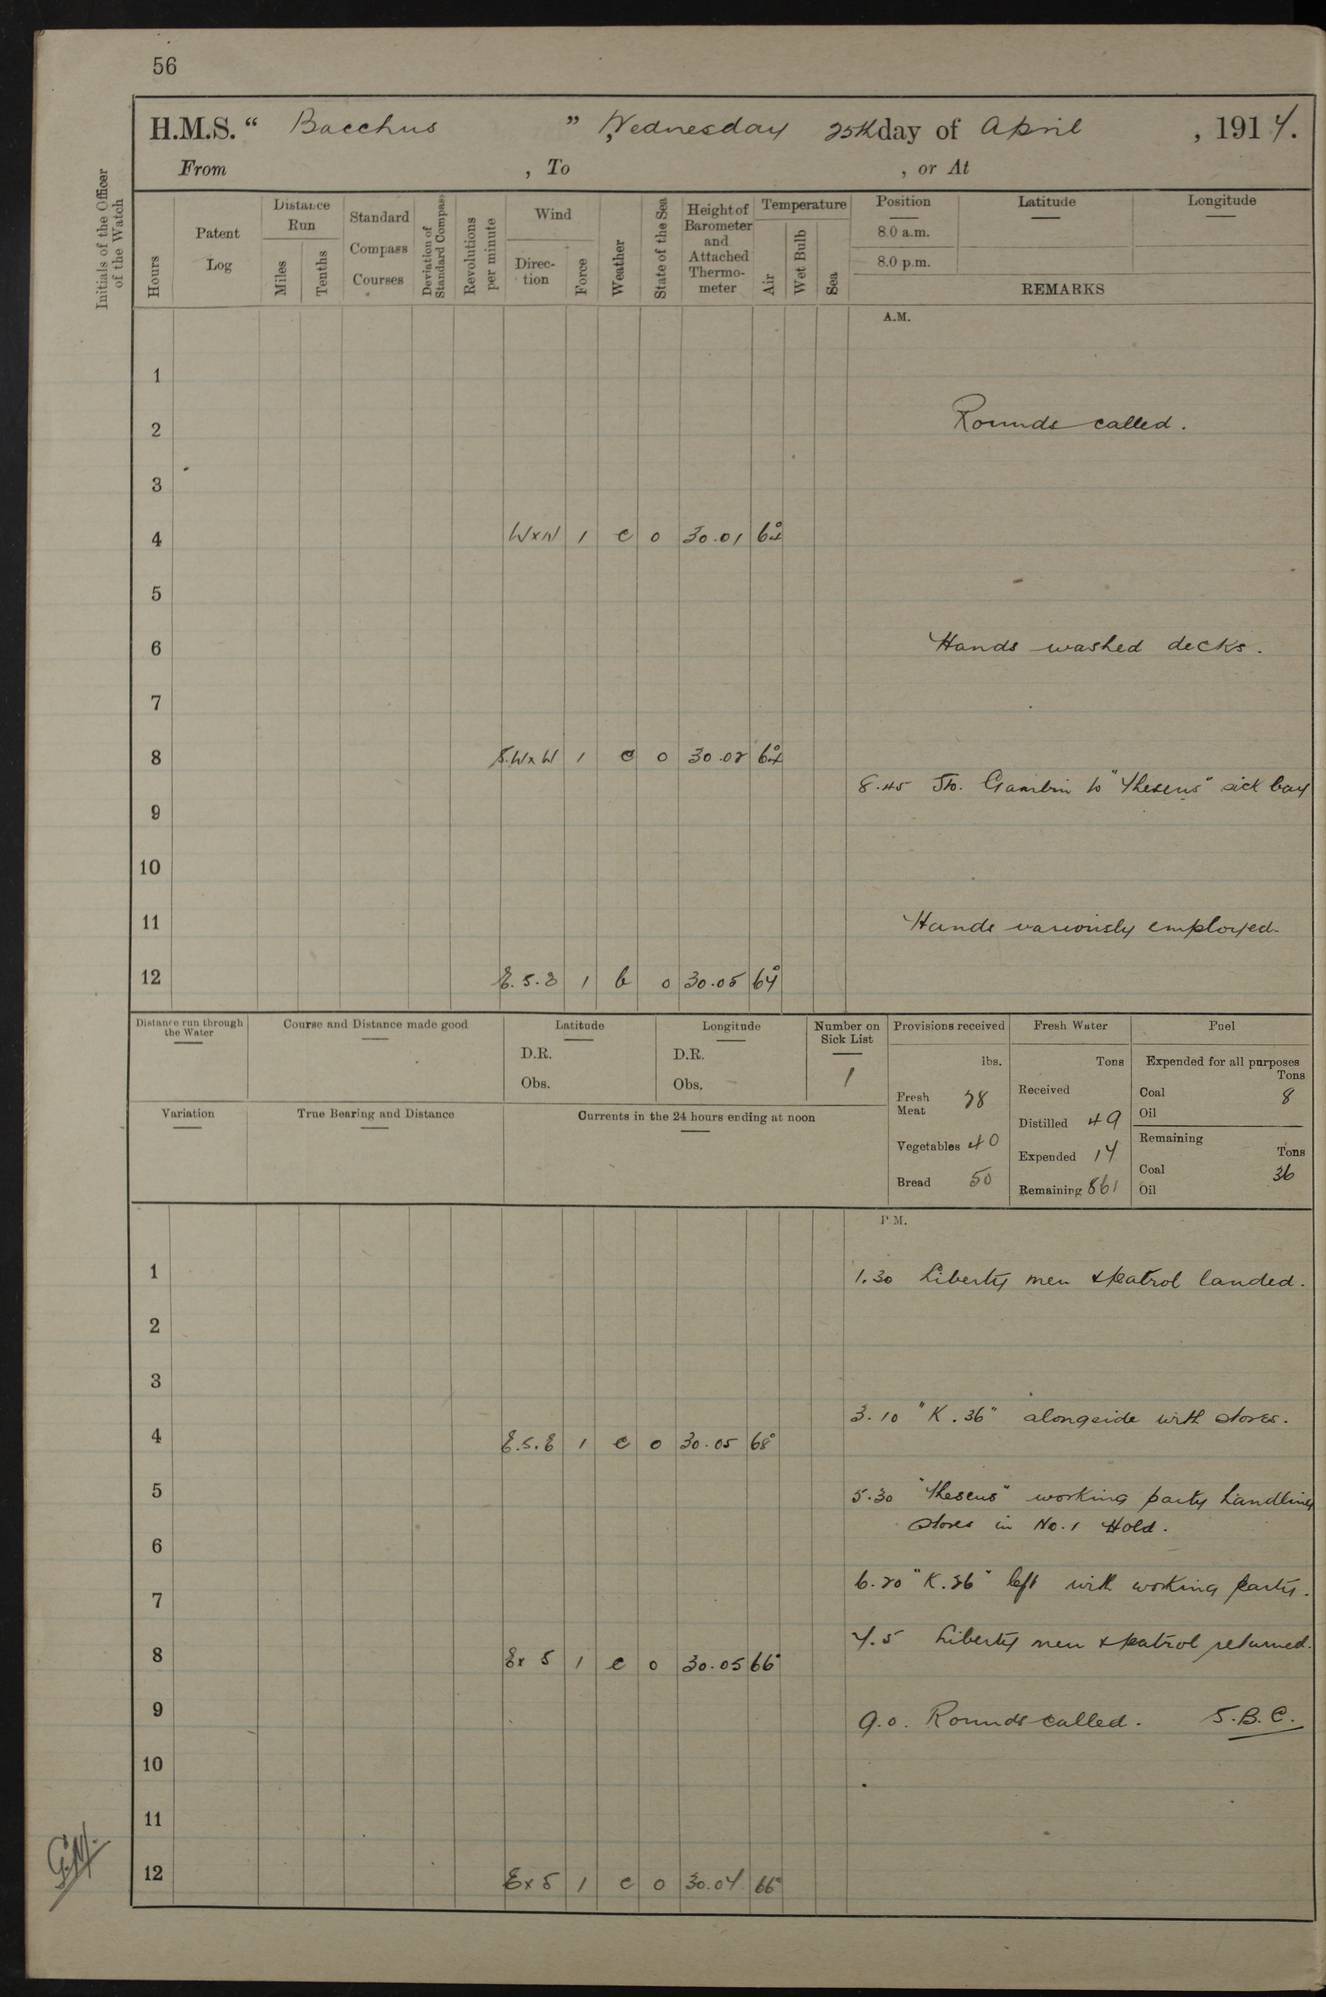 56
H.M.S. “ Bacchus ” , Wednesday 25th day of April , 1917.
From , To , or At
Initials of the Officer of the Watch
Hours
Patent Log
Distance Run
Miles
Tenths
Standard Compass Courses
Deviation of Standard Compass
Revolutions per minute
Wind
Direction
Force
Weather
State of the Sea
Height of Barometer and Attached Thermometer
Temperature
Air
Wet Bulb
Sea
Position
8.0 a.m.
8.0 p.m.
Latitude
Longitude
REMARKS
A.M.
1
2 Rounds called.
3
4 W x N 1 c 0 30.01 64°
5
6 Hands washed decks.
7
8 S.W x W 1 c 0 30.02 64°
8.45 Sto. Gambin to "Theseus" sick bay
9
10
11 Hands variously employed.
12 E.S.E 1 b 0 30.05 67°
Distance run through the Water
Course and Distance made good
Latitude
D.R.
Obs.
Longitude
D.R.
Obs.
Number on Sick List
1
Provisions received
lbs.
Fresh Meat 28
Vegetables 40
Bread 50
Fresh Water
Tons
Received
Distilled 49
Expended 17
Remaining 861
Fuel
Expended for all purposes
Tons
Coal 8
Oil
Remaining
Tons
Coal 36
Oil
Variation
True Bearing and Distance
Currents in the 24 hours ending at noon
P.M.
1 1.30 Liberty men & patrol landed.
2
3
3.10 "K.36" alongside with stores.
4 E.S.E 1 c 0 30.05 68°
5 5.30 "Theseus" working party handling
stores in No.1 Hold.
6
6.20 "K.36" left with working party.
7
7.5 Liberty men & patrol returned.
8 E x S 1 c 0 30.05 66°
9 9.0. Rounds called. S.B.C.
10
11
12 E x S 1 c 0 30.07 66°